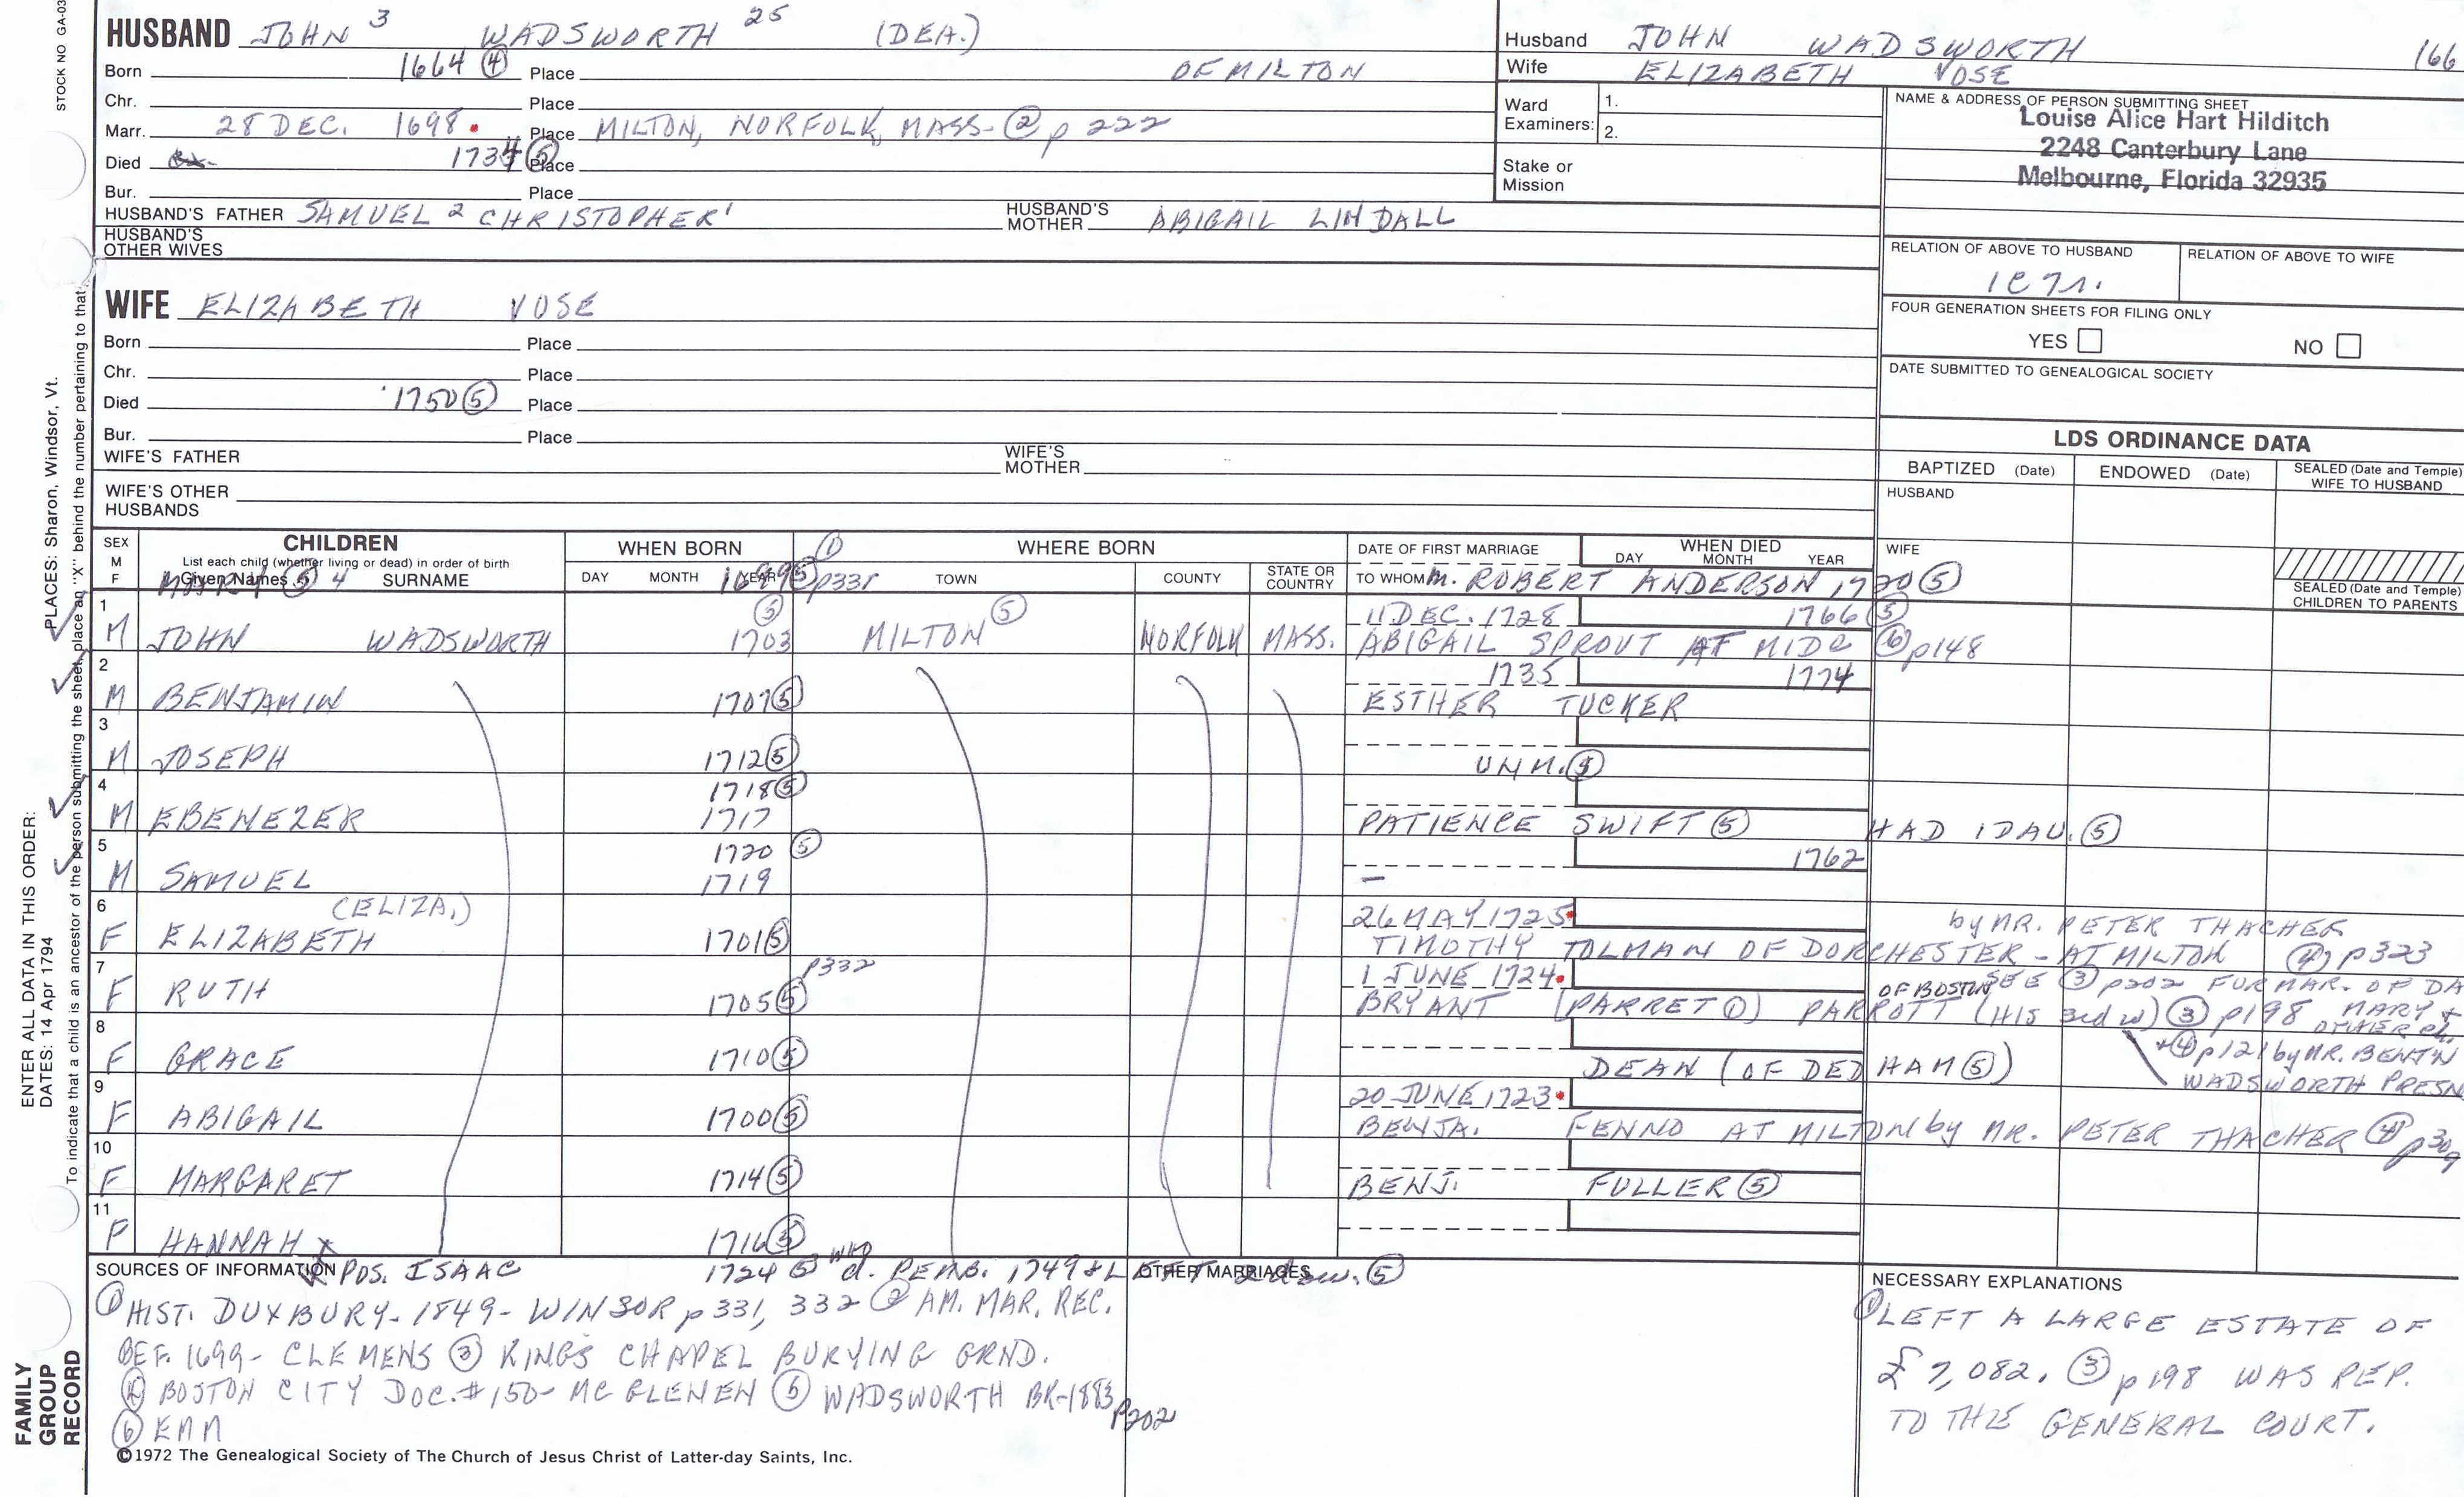 STOCK NO GA-03
HUSBAND JOHN 3 WADSWORTH 25 (DEA.)
Born 1664 ④ Place OF MILTON
Chr. Place
Marr. 28 DEC. 1698. Place MILTON, NORFOLK, MASS- ② p 222
Died 1734 ⑤ Place
Bur. Place
HUSBAND'S FATHER SAMUEL 2 CHRISTOPHER 1 HUSBAND'S MOTHER ABIGAIL LINDALL
HUSBAND'S OTHER WIVES
WIFE ELIZABETH VOSE
Born Place
Chr. Place
Died 1750 ⑤ Place
Bur. Place
WIFE'S FATHER WIFE'S MOTHER
WIFE'S OTHER HUSBANDS
Husband JOHN WADSWORTH 166
Wife ELIZABETH VOSE
Ward Examiners: 1. 2.
Stake or Mission
NAME & ADDRESS OF PERSON SUBMITTING SHEET
Louise Alice Hart Hilditch
2248 Canterbury Lane
Melbourne, Florida 32935
RELATION OF ABOVE TO HUSBAND RELATION OF ABOVE TO WIFE
FOUR GENERATION SHEETS FOR FILING ONLY
YES NO
DATE SUBMITTED TO GENEALOGICAL SOCIETY
LDS ORDINANCE DATA
BAPTIZED (Date) ENDOWED (Date) SEALED (Date and Temple) WIFE TO HUSBAND
HUSBAND
WIFE
SEALED (Date and Temple) CHILDREN TO PARENTS
SEX M F CHILDREN WHEN BORN ① WHERE BORN DATE OF FIRST MARRIAGE WHEN DIED
List each child (whether living or dead) in order of birth
Given Names SURNAME DAY MONTH YEAR TOWN COUNTY STATE OR COUNTRY TO WHOM DAY MONTH YEAR
MARY ⑤ 4 1699 ⑤ p331 M. ROBERT ANDERSON 1720 ⑤
1 ⑤ ⑤ 11 DEC. 1728 1766 ⑤
M JOHN WADSWORTH 1703 MILTON NORFOLK MASS. ABIGAIL SPROUT AT MIDD ⑥ p148
2 1735 1774
M BENJAMIN 1707 ⑤ ESTHER TUCKER
3
M JOSEPH 1712 ⑤ UNM. ⑤
4 1718 ⑤
M EBENEZER 1717 PATIENCE SWIFT ⑤ HAD 1 DAU. ⑤
5 1720 ⑤ 1762
M SAMUEL 1719 —
6 (ELIZA.) 26 MAY 1725 by MR. PETER THACHER
F ELIZABETH 1701 ⑤ TIMOTHY TOLMAN OF DORCHESTER - AT MILTON ④ p323
7 p332 1 JUNE 1724. OF BOSTON SEE ③ p202 FOR MAR. OF DA
F RUTH 1705 ⑤ BRYANT (PARRET ①) PARROTT (HIS 3rd w) ③ p198 MARY + OTHER ch.
8 + ④ p121 by MR. BENJ'N
F GRACE 1710 ⑤ DEAN (OF DEDHAM ⑤) WADSWORTH PRESN
9 20 JUNE 1723.
F ABIGAIL 1700 ⑤ BENJA. FENNO AT MILTON by MR. PETER THACHER ④ p309
10
F MARGARET 1714 ⑤ BENJ. FULLER ⑤
11
F HANNAH x 1716 ⑤
x POS. ISAAC 1724 ⑤ WHO d. PEMB. 1749 & LEFT 2 dau. ⑤
SOURCES OF INFORMATION OTHER MARRIAGES NECESSARY EXPLANATIONS
① HIST. DUXBURY- 1849- WINSOR p 331, 332 ② AM. MAR. REC.
BEF. 1699- CLEMENS ③ KINGS CHAPEL BURYING GRND.
④ BOSTON CITY DOC. # 150- MC GLENEN ⑤ WADSWORTH BK-1883 p202
⑥ EMM
① LEFT A LARGE ESTATE OF
£ 7,082. ③ p198 WAS REP.
TO THE GENERAL COURT.
©1972 The Genealogical Society of The Church of Jesus Christ of Latter-day Saints, Inc.
ENTER ALL DATA IN THIS ORDER:
DATES: 14 Apr 1794 PLACES: Sharon, Windsor, Vt.
To indicate that a child is an ancestor of the person submitting the sheet, place an "X" behind the number pertaining to that
FAMILY GROUP RECORD